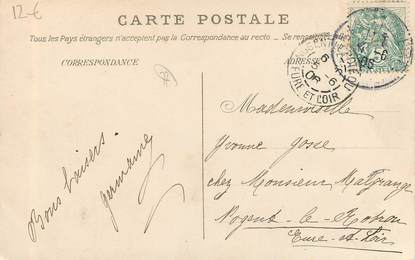 12-€
CARTE POSTALE
Tous les Pays étrangers n'acceptent pas la Correspondance au recto
CORRESPONDANCE
ADRESSE
EURE ET LOIR
Mademoiselle
Yvonne Josse
chez Monsieur Malgrange
Nogent-le-Rotrou
Eure-et-Loir
Bons baisers
Germaine